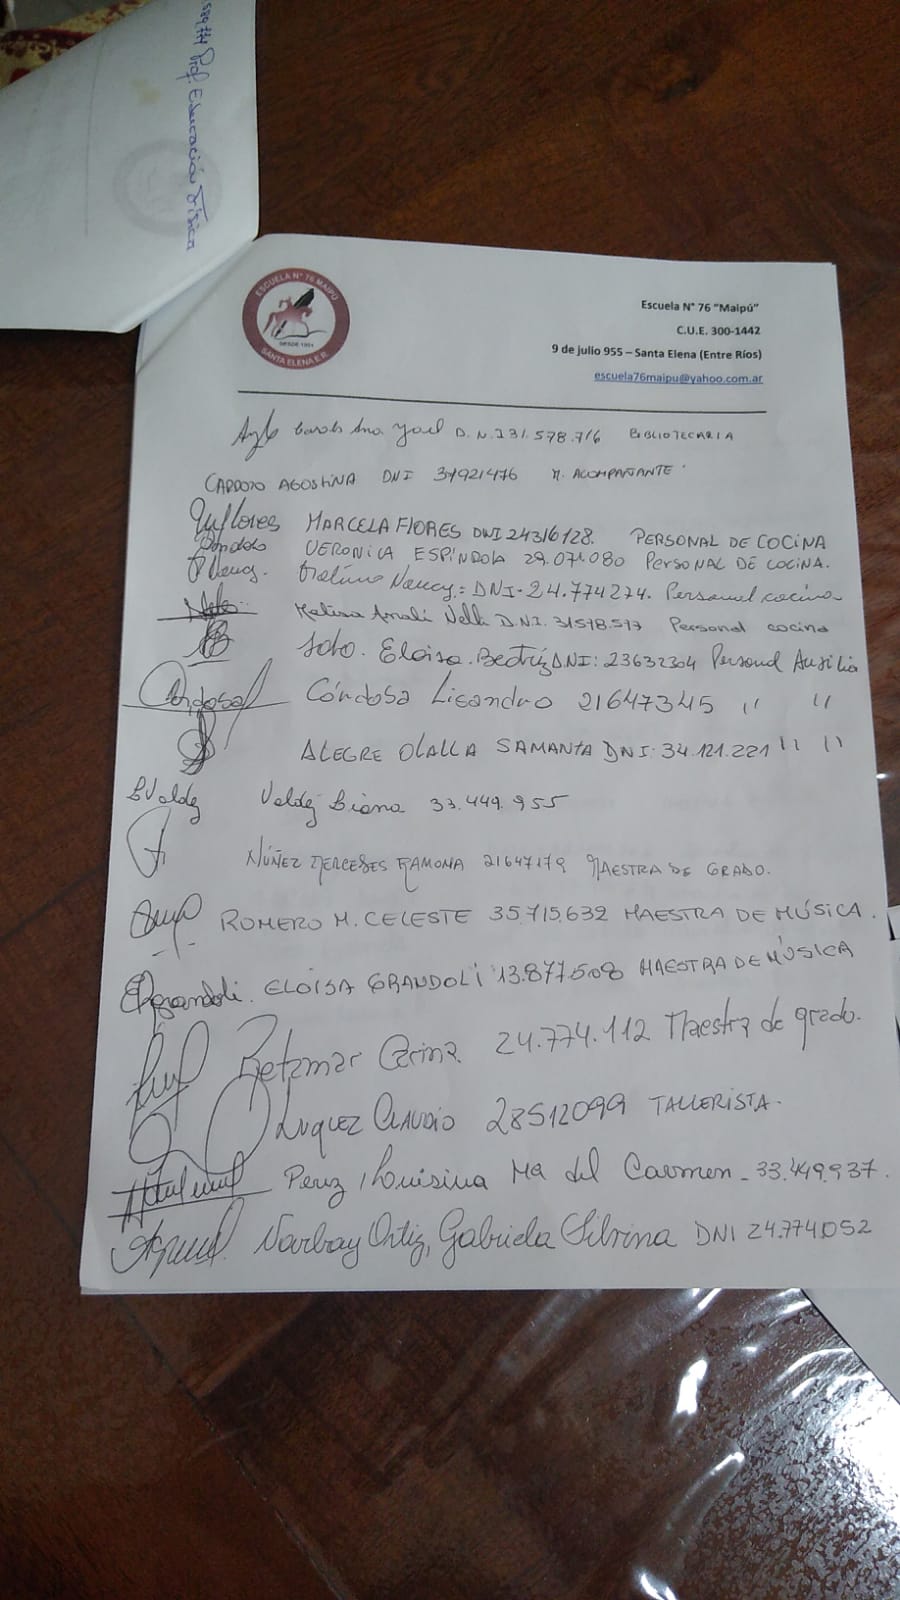 589714 Prof. Educación Física
ESCUELA N° 76 MAIPÚ
DESDE 1901
SANTA ELENA E.R.
Escuela N° 76 "Maipú"
C.U.E. 300-1442
9 de julio 955 – Santa Elena (Entre Ríos)
escuela76maipu@yahoo.com.ar
Ana Yael D.N.I 31.578.716 BIBLIOTECARIA
CARDOZO AGOSTINA DNI 37921476 M. ACOMPAÑANTE
Mflores MARCELA FLORES DNI 24316128. PERSONAL DE COCINA
VERONICA ESPÍNDOLA 29.071.080 PERSONAL DE COCINA.
Nancy.: DNI-24.774274. Personal cocina
Melisa Anali Nelli D.N.I. 31578.517 Personal cocina
Soto. Eloisa. Beatriz DNI: 23632304 Personal Auxilia
Cordosa Córdosa Lisandro 21647345 " "
ALEGRE OLALLA SAMANTA DNI: 34.121.221 " "
BValdez Valdez Biana 33.449.955
NÚÑEZ MERCEDES RAMONA 21647179 MAESTRA DE GRADO.
ROMERO M. CELESTE 35.715.632 MAESTRA DE MÚSICA.
EGrandoli. ELOÍSA GRANDOLI 13.877.508 MAESTRA DE MÚSICA
Retamar Carina 24.774.112 Maestra de grado.
LUQUEZ CLAUDIO 28512099 TALLERISTA.
Perez, Louisina Ma del Carmen - 33.449.937.
Narbay Ortiz, Gabriela Silvina DNI 24.774.052